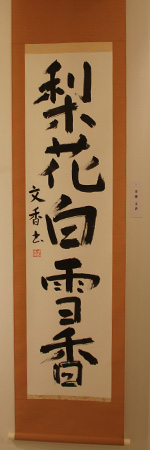 梨花白雪香
文香书